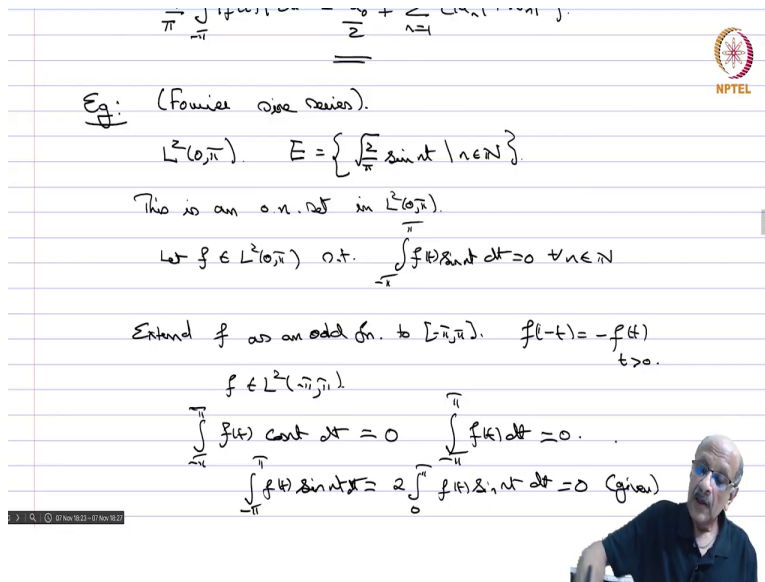 1/π ∫_{-π}^{π} |f(t)|² dt = a₀²/2 + Σ_{n=1} (|aₙ|² + |bₙ|²).
NPTEL
Eg: (Fourier sine series).
L²(0,π). E = { √(2/π) sin nt | n∈ℕ }.
This is an o.n. set in L²(0,π).
Let f ∈ L²(0,π) s.t. ∫_{-π}^{π} f(t) sin nt dt = 0 ∀ n∈ℕ
Extend f as an odd fn. to [-π,π]. f(-t) = -f(t)
t>0.
f ∈ L²(-π,π).
∫_{-π}^{π} f(t) cos nt dt = 0 ∫_{-π}^{π} f(t) dt = 0.
∫_{-π}^{π} f(t) sin nt dt = 2 ∫_{0}^{π} f(t) sin nt dt = 0 (given)
07 Nov 18:23–07 Nov 18:27